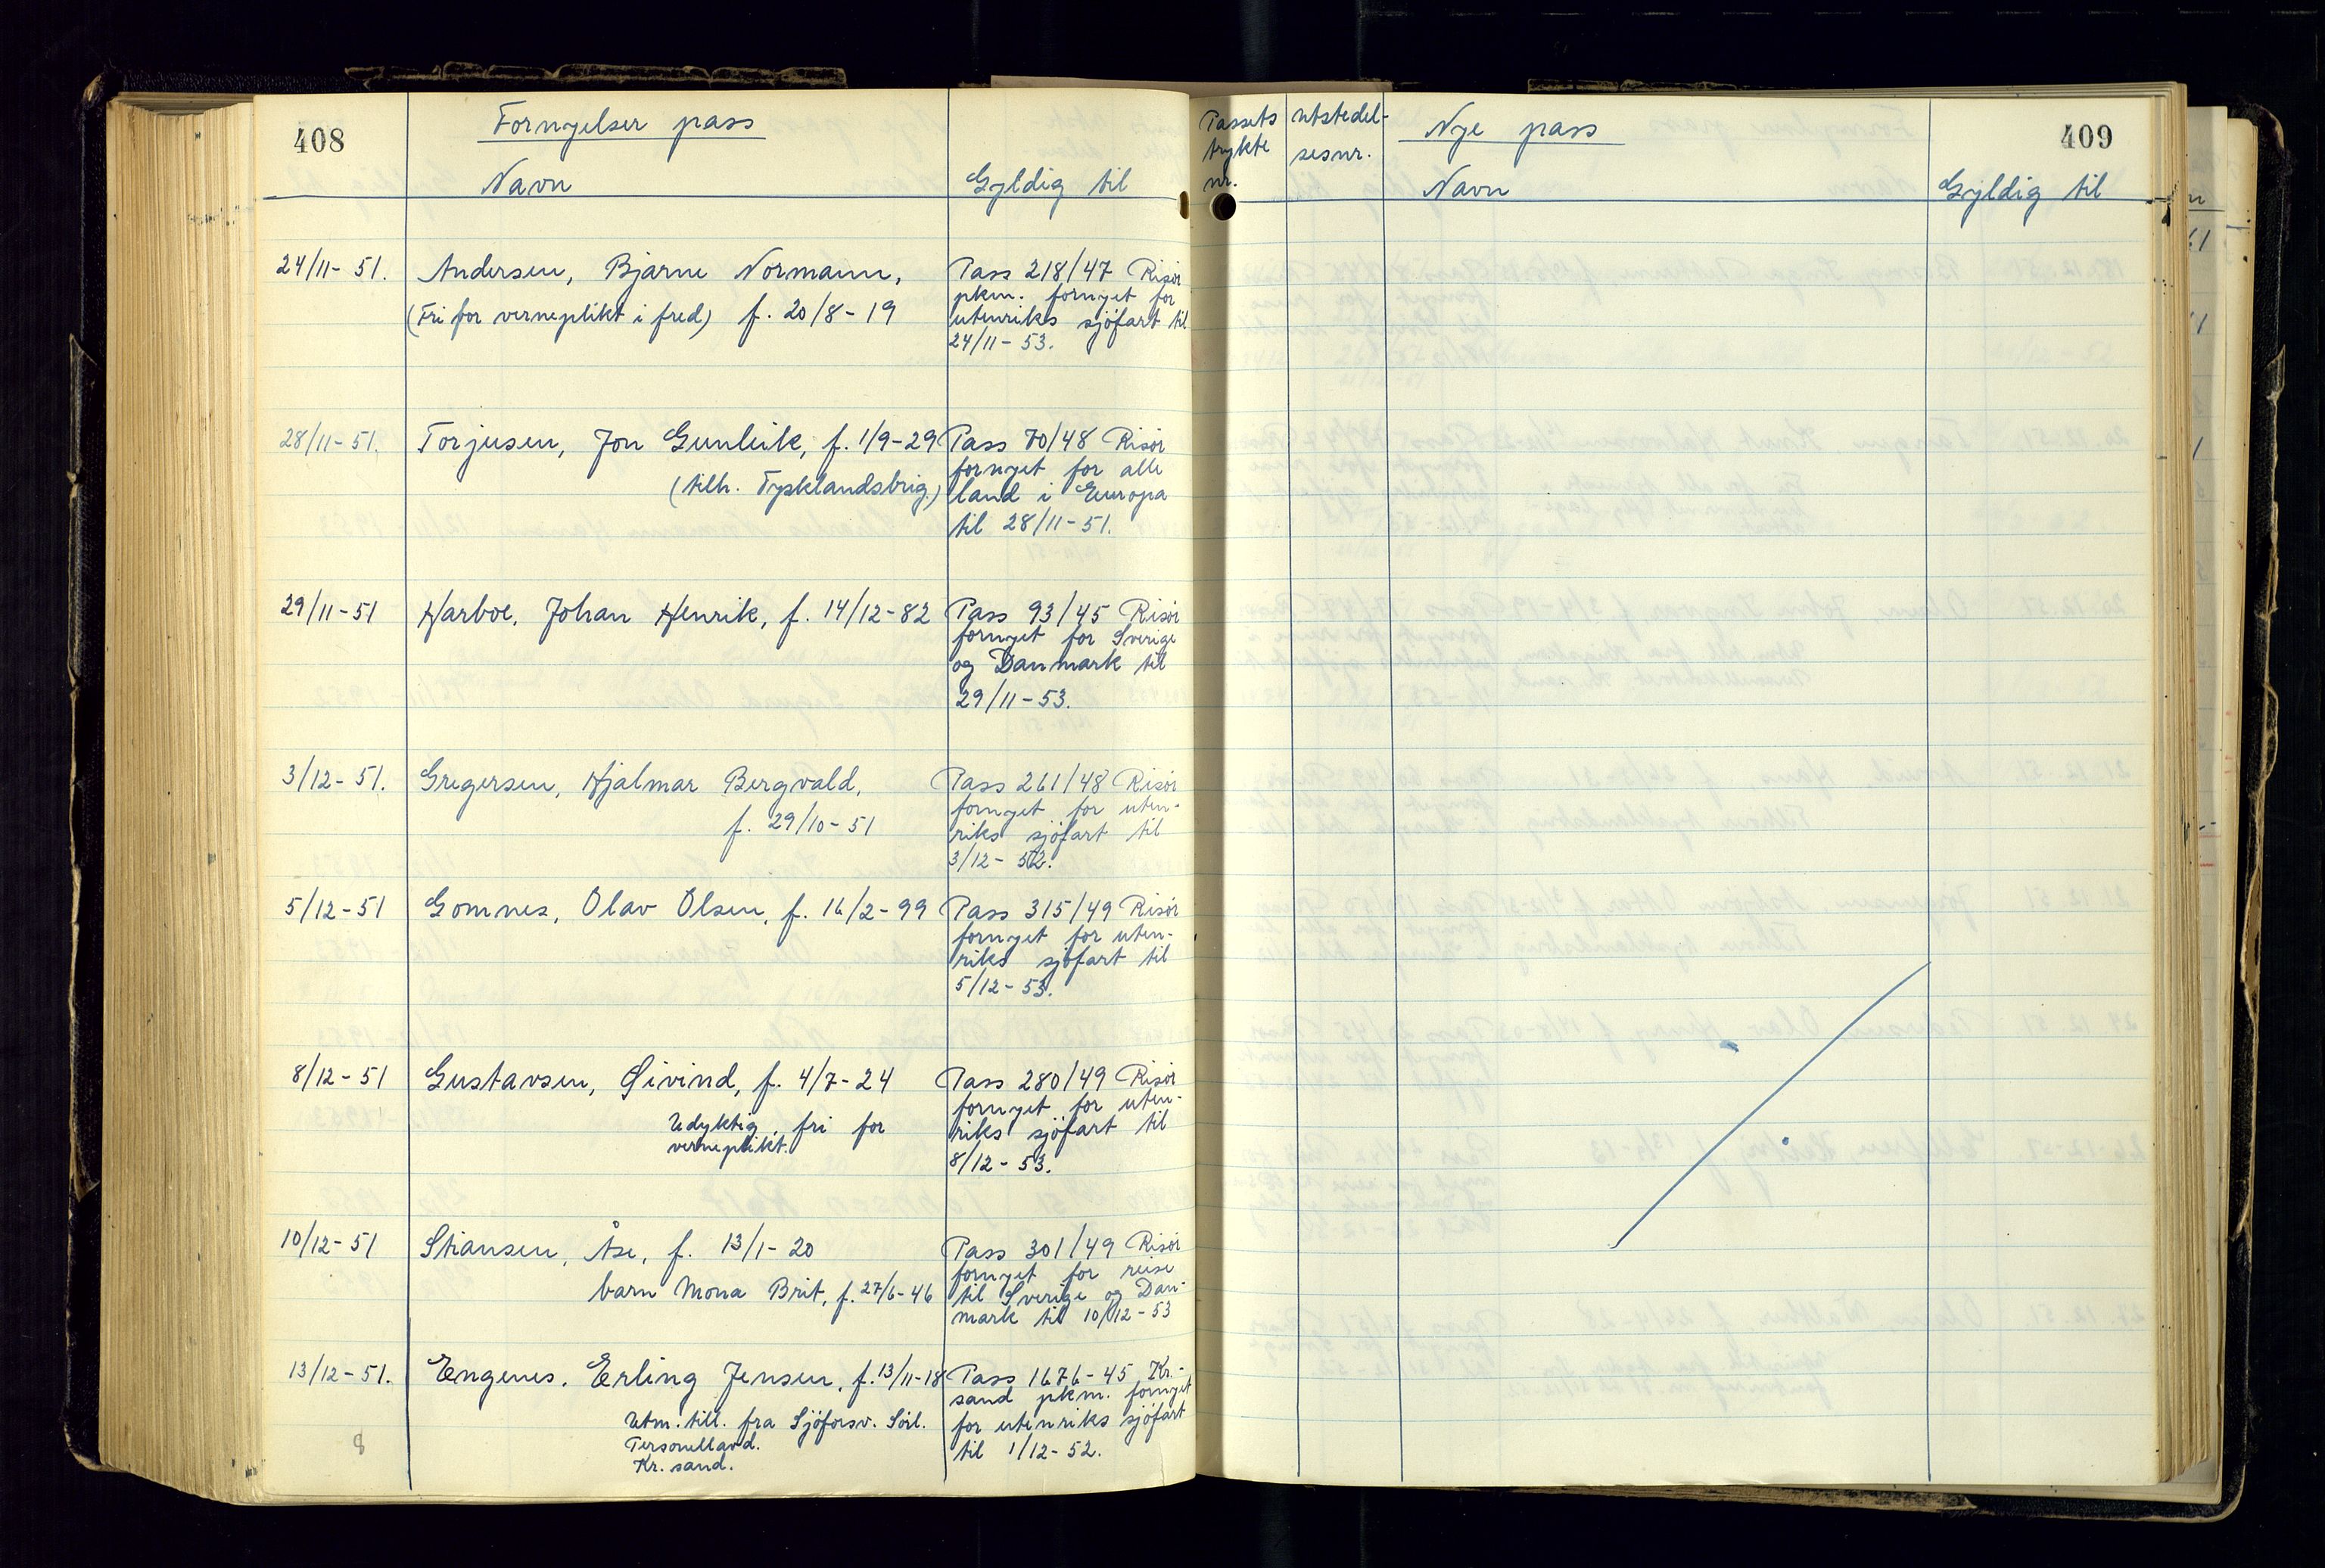 408
Fornyelser pass
Navn
Gyldig til
24/11-51.
Andersen, Bjarne Normann,
(Fri for verneplikt i fred) f. 20/8-19
Pass 218/47 Risör
pkm. fornyet for
utenriks sjöfart til
24/11-53.
28/11-51.
Torjusen, Jon Gunleik, f. 1/9-29
(tilh. Tysklandsbrig.)
Pass 70/48 Risör
fornyet for alle
land i Europa
til 28/11-51.
29/11-51
Harboe, Johan Henrik, f. 14/12-82
Pass 93/45 Risör
fornyet for Sverige
og Danmark til
29/11-53.
3/12-51.
Gregersen, Hjalmar Bergvald,
f. 29/10-51
Pass 261/48 Risör
fornyet for uten-
riks sjöfart til
3/12-52.
5/12-51
Gomnes, Olav Olsen, f. 16/2-99
Pass 315/49 Risör
fornyet for uten-
riks sjöfart til
5/12-53.
8/12-51
Gustavsen, Øivind, f. 4/7-24
Udyktig, fri for
verneplikt.
Pass 280/49 Risör
fornyet for uten-
riks sjöfart til
8/12-53.
10/12-51
Stiansen, Åse, f. 13/1-20
barn Mona Brit, f. 27/6-46
Pass 301/49 Risör
fornyet for reise
til Sverige og Dan-
mark til 10/12-53
13/12-51.
Engenes, Erling Jensen, f. 13/11-18
Utm. till. fra Sjöforsv. Sörl.
Personellavd.
Kr. sand.
Pass 1676-45 Kr.-
sand pkm. fornyet
for utenriks sjöfart
til 1/12-52.
8
Passets
trykte
nr.
utstedel-
sesnr.
Nye pass
Navn
409
Gyldig til